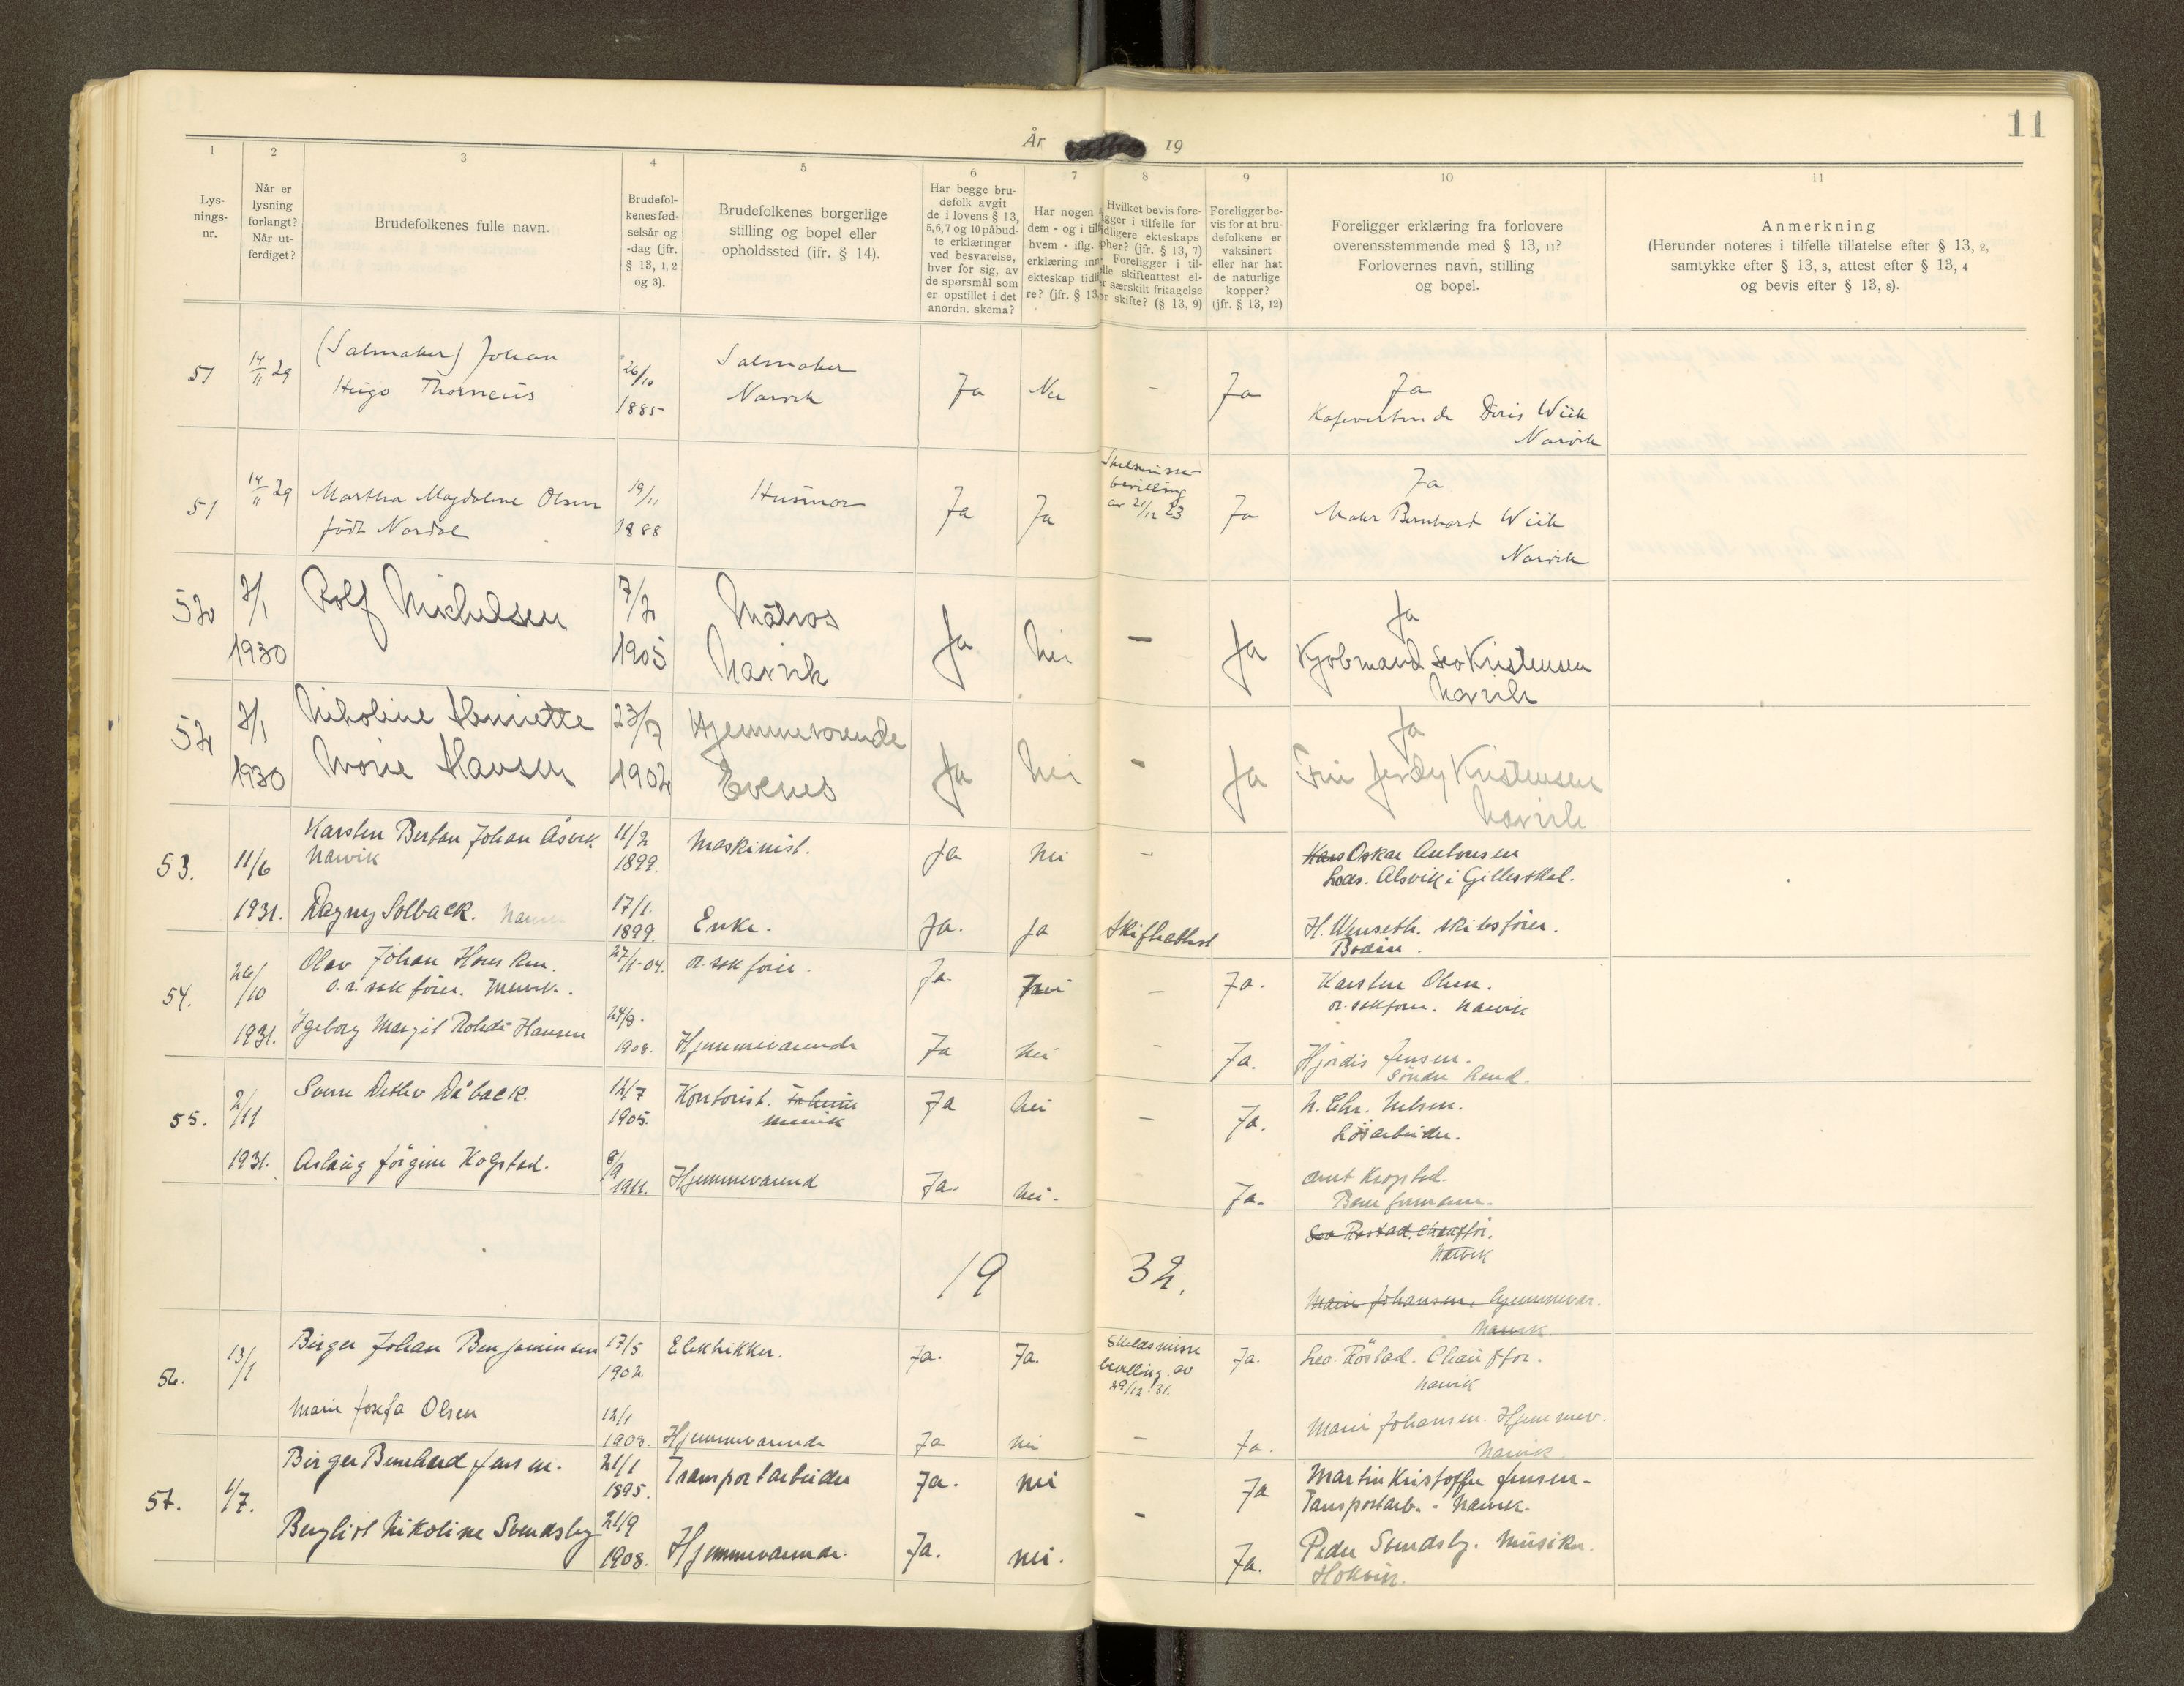 11
År 19
1 2 3 4 5 6 7 8 9 10 11
Lys-
nings-
nr.
Når er
lysning
forlangt?
Når ut-
ferdiget?
Brudefolkenes fulle navn.
Brudefol-
kenes fød-
selsår og
-dag (jfr.
§ 13, 1, 2
og 3).
Brudefolkenes borgerlige
stilling og bopel eller
opholdssted (jfr. § 14).
Har begge bru-
defolk avgit
de i lovens § 13,
5, 6, 7 og 10 påbud-
te erklæringer
ved besvarelse,
hver for sig, av
de spørsmål som
er opstillet i det
anordn. skema?
Har nogen
dem - og i til
hvem - iflg.
erklæring inn
ekteskap tidl
re? (jfr. § 13
Hvilket bevis fore-
ligger i tilfelle for
tidligere ekteskaps
ophør? (jfr. § 13, 7)
Foreligger i til-
felle skifteattest el-
r særskilt fritagelse
or skifte? (§ 13, 9)
Foreligger be-
vis for at bru-
defolkene er
vaksinert
eller har hat
de naturlige
kopper?
(jfr. § 13, 12)
Foreligger erklæring fra forlovere
overensstemmende med § 13, 11?
Forlovernes navn, stilling
og bopel.
Anmerkning
(Herunder noteres i tilfelle tillatelse efter § 13, 2,
samtykke efter § 13, 3, attest efter § 13, 4
og bevis efter § 13, 8).
51 14/11 29 (Salmaker) Johan
Hugo Thorneus
26/10
1885
Salmaker
Narvik
Ja Nei - Ja Ja
Doris Wiik
Narvik
51 14/11 29 Martha Magdalene Olsen
født Nordal
19/11
1888
Husmor
Ja Ja
Skilsmisse
bevilling
av 21/12 23
Ja Ja
Maler Bernhard Wiik
Narvik
52 2/1
1930
Rolf Michelsen
7/2
1905
Matros
Narvik
Ja Nei - Ja Ja
Kjøbmand Leo Kristensen
Narvik
52 2/1
1930
Nikoline Henriette
Marie Hansen
23/12
1902
Hjemmeværende
Evenes
Ja Nei - Ja Ja
Fru Jerdy Kristensen
Narvik
53. 11/6 Karsten Bertau Johan Åsvik
Narvik
11/2
1899.
Maskinist.
Ja Nei - Hans Oskar Antonsen
Lods. Alsvik i Gilleskål.
1931. Dagny Solback.
17/1.
1899.
Enke.
Ja. Ja Skifteattest H. Wenseth. skibsfører.
Bodin.
54. 26/10 Olav Johan Hansen.
o.r. sakfører. Narvik.
27/1-04. or. sakfører.
Ja. Nei - Ja. Karsten Olsen.
or. sakfører. Narvik
1931. Ingeborg Margit Rohde Hansen
24/8-
1908.
Hjemmeværende
Ja Nei - Ja. Hjørdis Jensen.
Søndre Land.
55. 2/11 Sverre Detlev Dåback.
12/7
1905.
Kontorist.
Narvik
Ja Nei - Ja. N. Chr. Nilsen.
Løsarbeider.
1931. Aslaug Jørgine Kogstad.
8/9
1911.
Hjemmeværend
Ja. Nei. Ja. Arnt Krogstad.
Baneformann.
Leo Rostad. Chauffør.
Narvik
19 32.
Marie Johansen, hjemmevær.
Narvik
56. 13/1 Birger Johan Benjaminsen
17/5
1902.
Elektrikker.
Ja. Ja.
Skilsmisse
bevilling av
29/12.31.
Ja. Leo Röstad. Chauffør.
Narvik
Marie Josefa Olsen
12/1
1908.
Hjemmeværende
Ja Nei - Ja. Marie Johansen. Hjemmev.
Narvik.
57. 1/7. Birger Bernhard Jensen.
21/1
1895.
Transportarbeider
Ja. Nei Ja Martin Kristoffer Jensen -
Tansportarb. - Narvik.
Bergliot Nikoline Svendsby
21/9
1908.
Hjemmeværende.
Ja. Nei. - Ja. Peder Svendsby. Musiker.